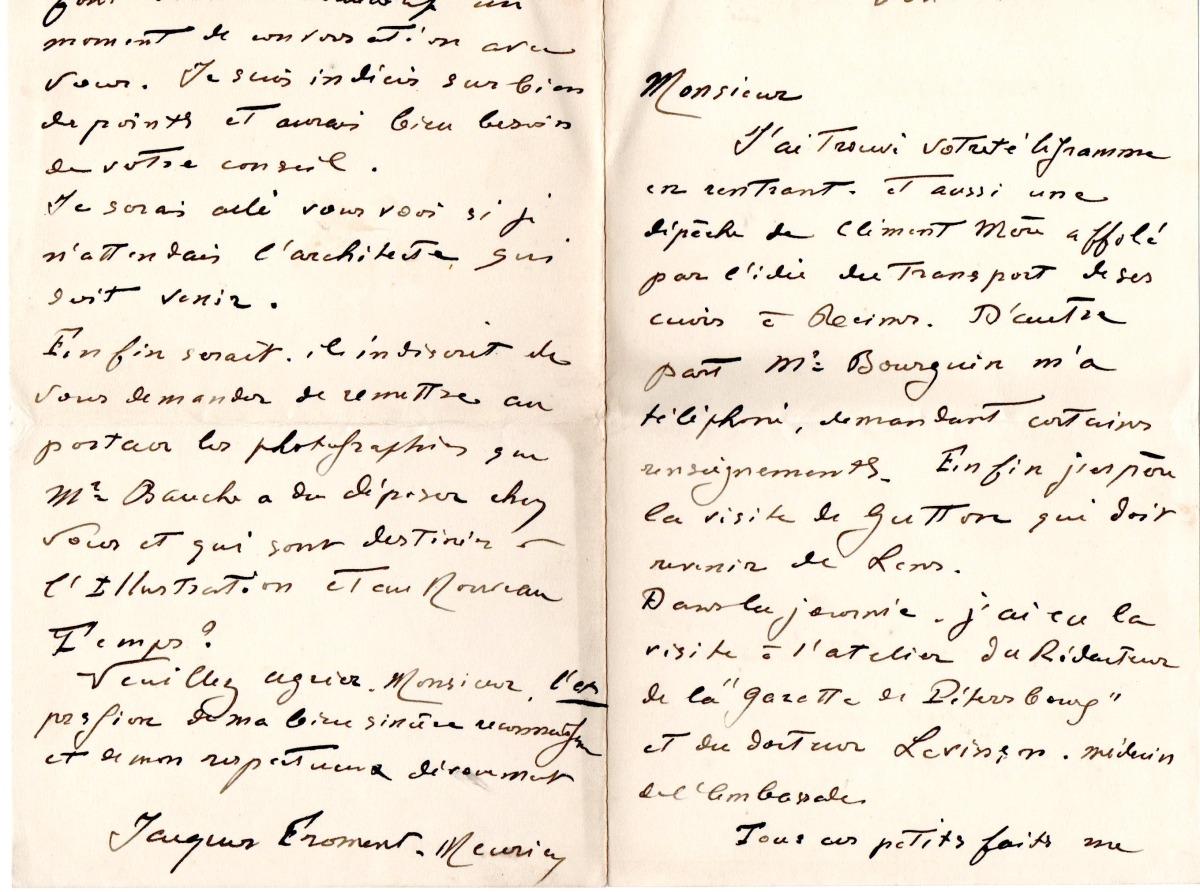 Monsieur
J'ai trouvé votre télégramme
en rentrant. et aussi une
dépêche de Clément Mère affolé
par l'idée du transport de ses
cuirs à Reims. D'autre
part Mr Bourguin m'a
téléphoné, demandant certains
renseignements. Enfin j'espère
la visite de Gutton qui doit
revenir de Lens.
Dans la journée. j'ai eu la
visite à l'atelier du Rédacteur
de la "Gazette de Pétersbourg"
et du docteur Levinson. médecin
de l'ambassade.
Tous ces petits faits me
font un
moment de conversation avec
vous. Je suis indécis sur bien
de points et aurais bien besoin
de votre conseil.
Je serais allé vous voir si je
n'attendais l'architecte, qui
doit venir.
Enfin serait. il indiscret de
vous demander de remettre au
porteur les photographies que
Mr Bauche a du déposer chez
vous et qui sont destinées à
l'Illustration et au Nouveau
Temps?
Veuillez agréer. Monsieur, l'ex
pression de ma bien sincère reconnaissance
et de mon respectueux dévouement
Jacques Froment. Meurice